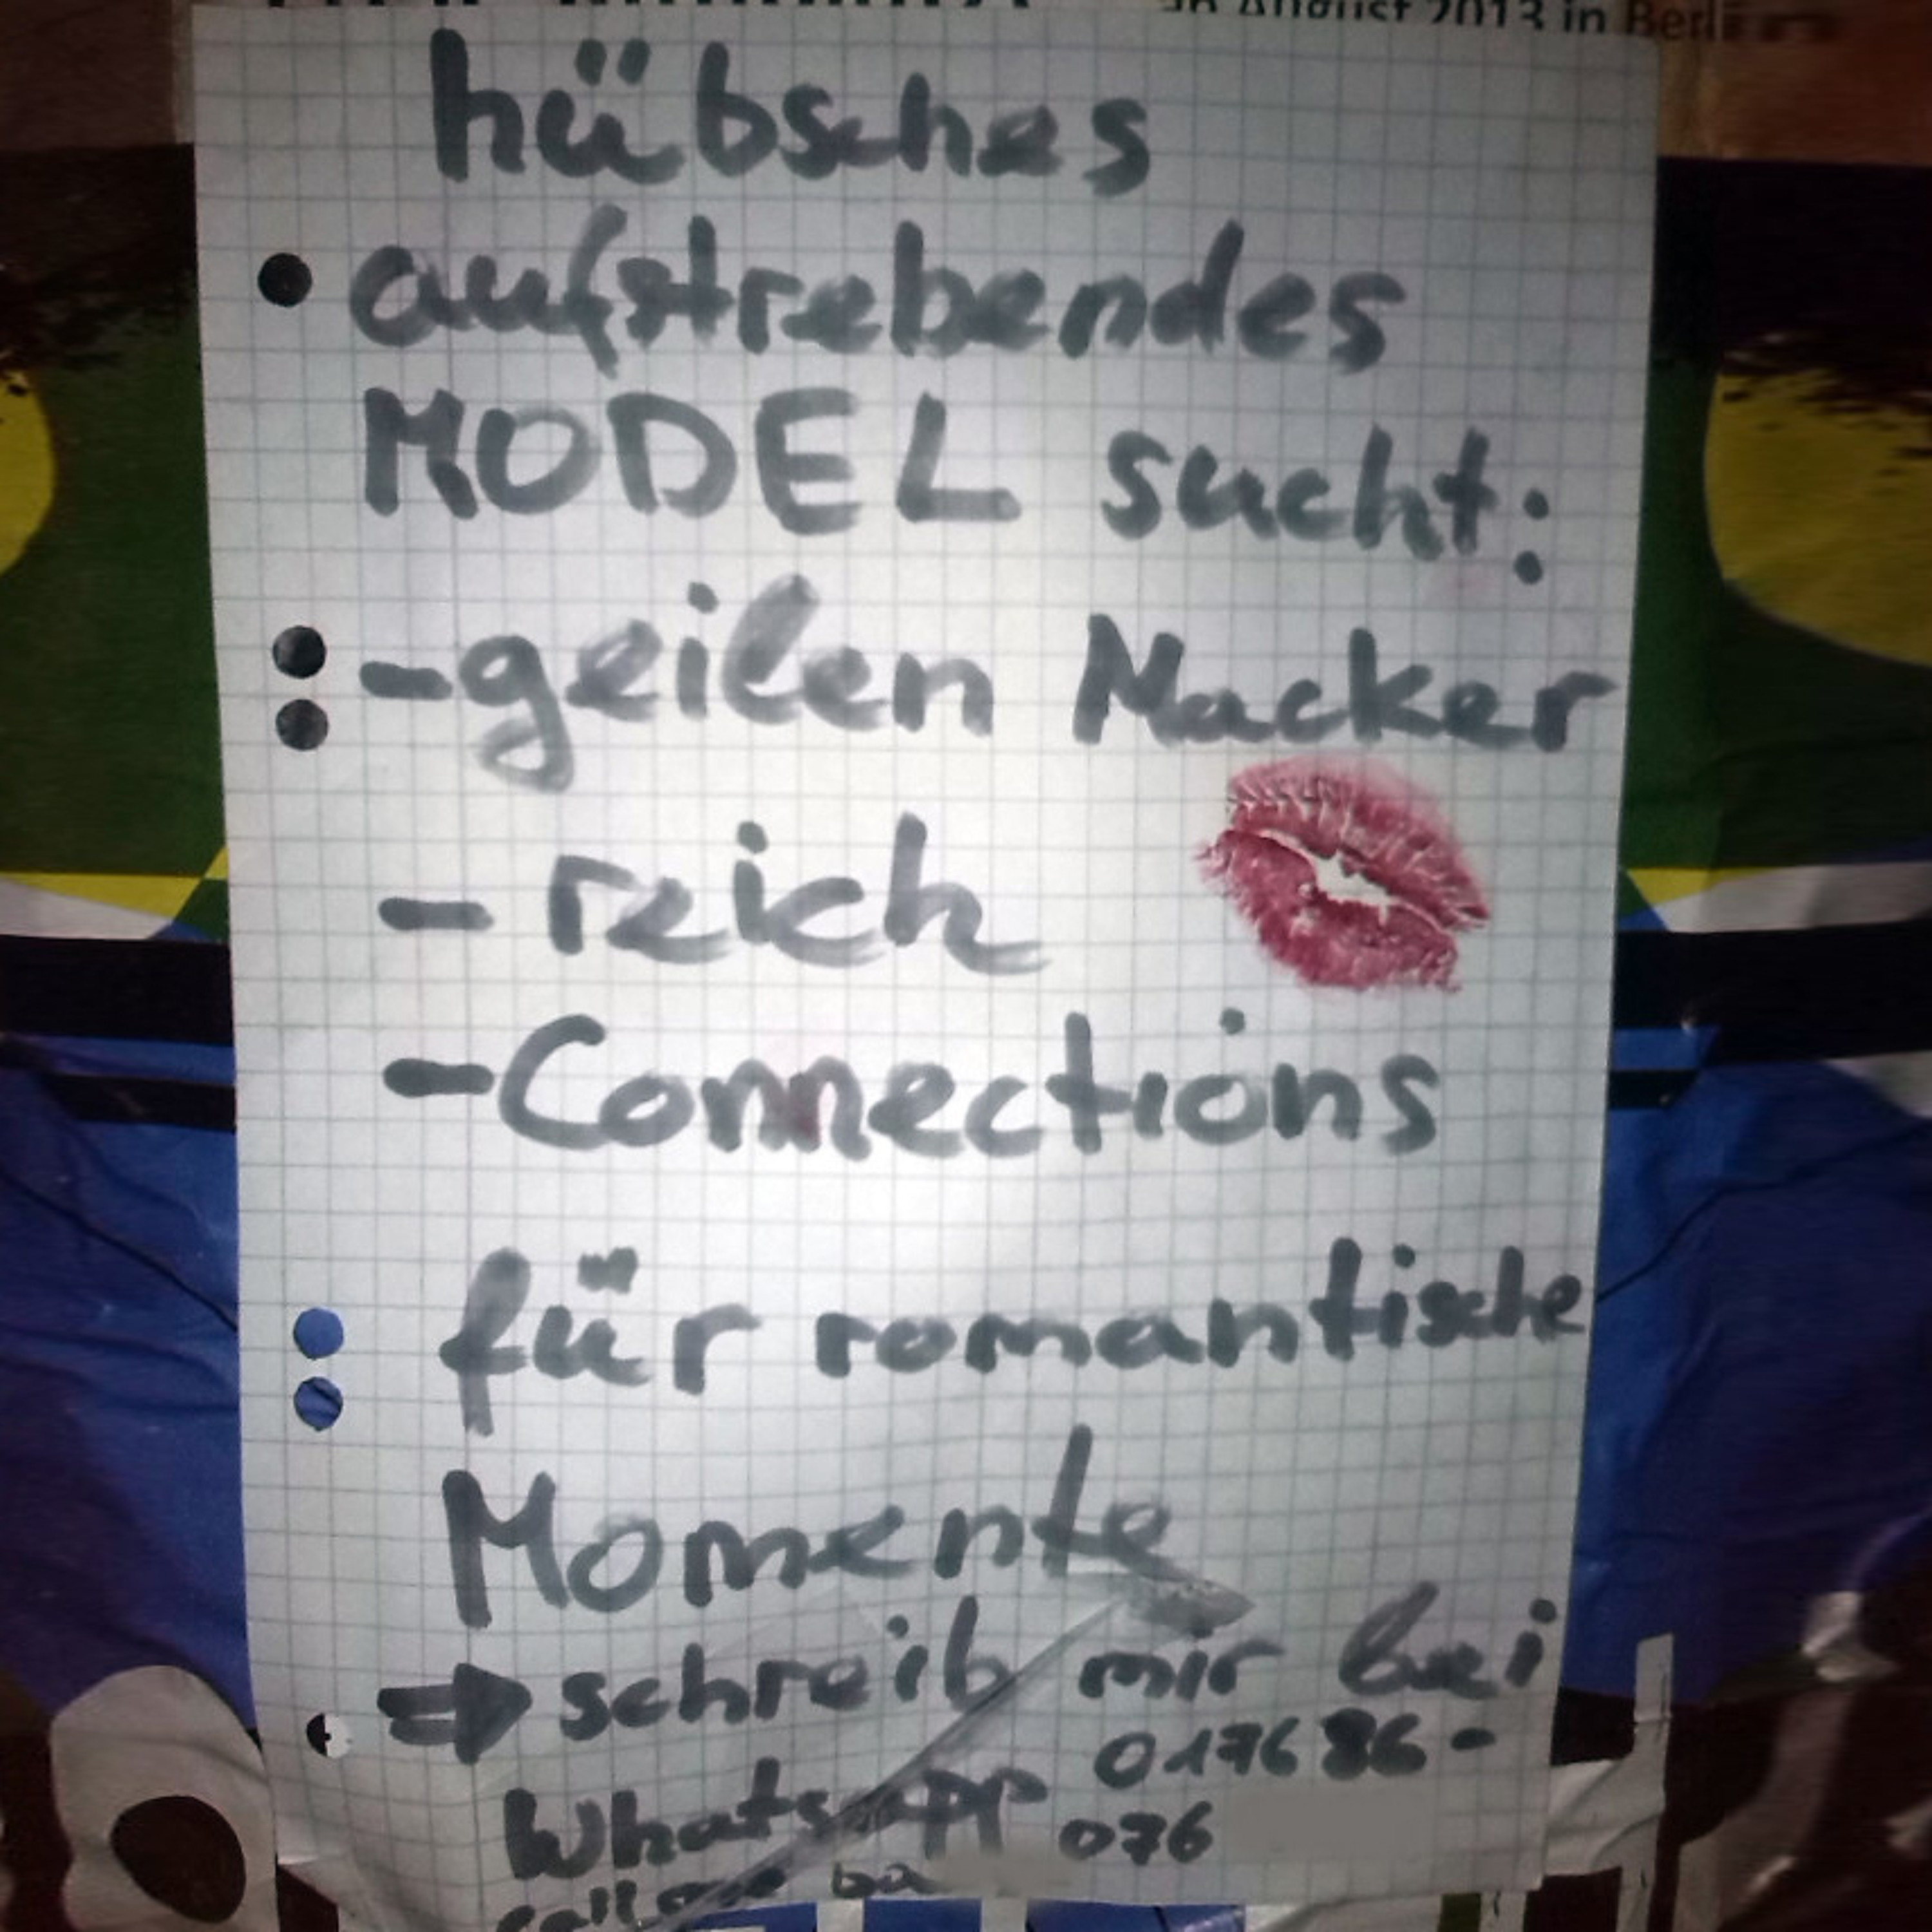 August 2013 in Berlin
hübsches
aufstrebendes
MODEL sucht:
-geilen Macker
- reich
-Connections
für romantische
Momente
⇒ schreib mir bei
Whatsapp 017686-
076
call me